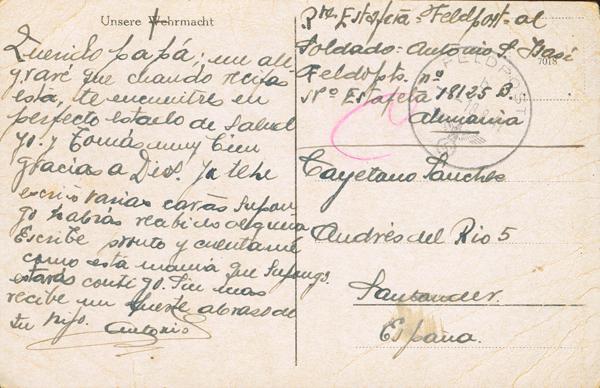 Unsere Wehrmacht
Querido papá; me ale
graré que cuando recibas
esta, te encuentres en
perfecto estado de salud
yo y Tomás muy bien
gracias a Dios. Ya te he
escrito varias cartas supon-
go habrás recibido alguna
Escribe pronto y cuentame
como está mamá que supongo
estarás contigo. Sin mas
recibe un fuerte abraso de
tu hijo.
Antonio
Rte. Estafeta-Feldpost-al
Soldado-Antonio S.
7018
Feldpts. nº
Nº Estafeta 18125 B.
Alemania
FELDPOST
Cayetano Sanches
Andrés del Rio 5
Santander
España.